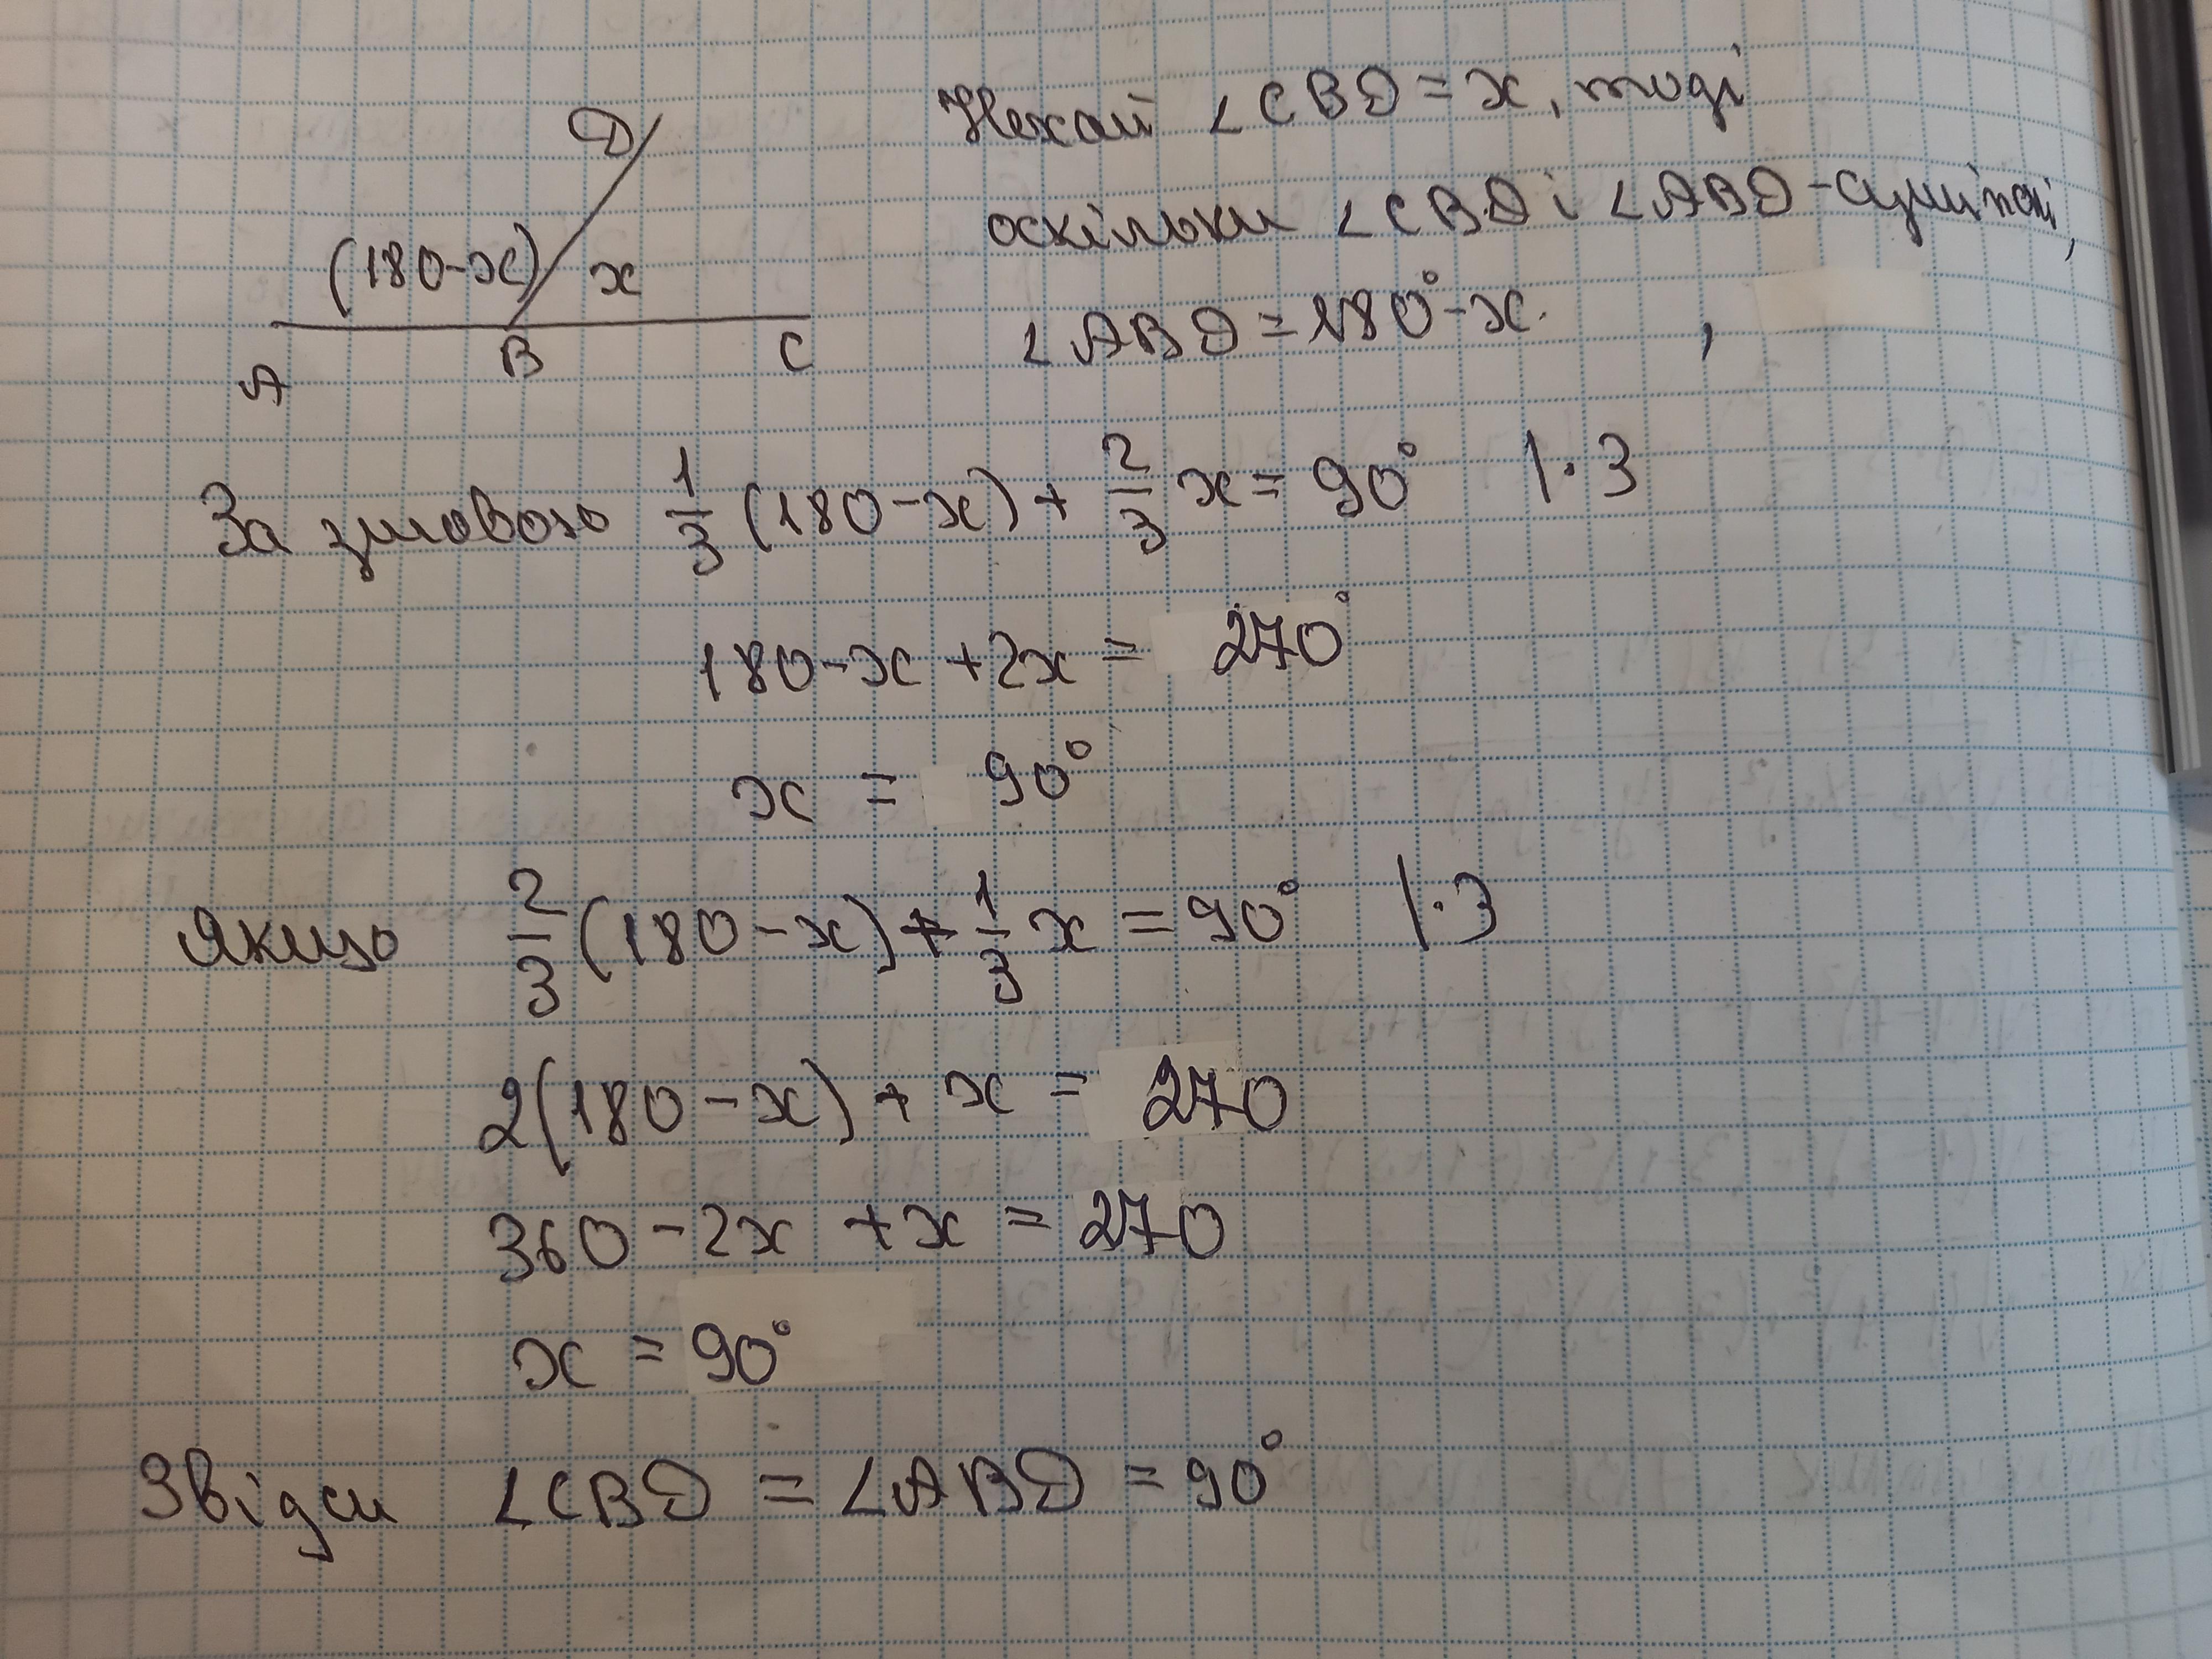 D
(180-x) x
A B C
Нехай ∠CBD = x, тоді
оскільки ∠CBD і ∠ABD - суміжні,
∠ABD = 180° - x. ,
За умовою 1/3 (180-x) + 2/3 x = 90° |·3
180-x+2x = 270°
x = 90°
Якщо 2/3 (180-x) + 1/3 x = 90° |·3
2(180-x) + x = 270
360-2x+x = 270
x = 90°
Звідси ∠CBD = ∠ABD = 90°